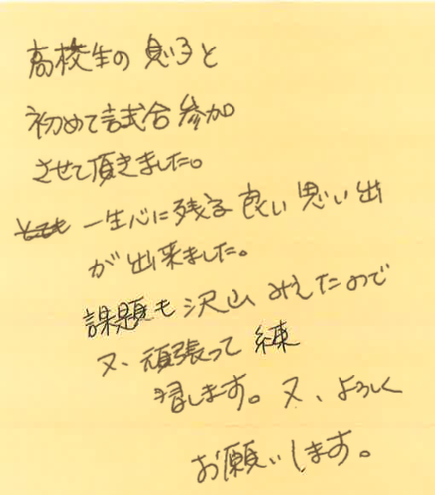 高校生の息子と
初めて試合参加
させて頂きました。
一生心に残る良い思い出
が出来ました。
課題も沢山みえたので
又、頑張って練
習します。又、よろしく
お願いします。